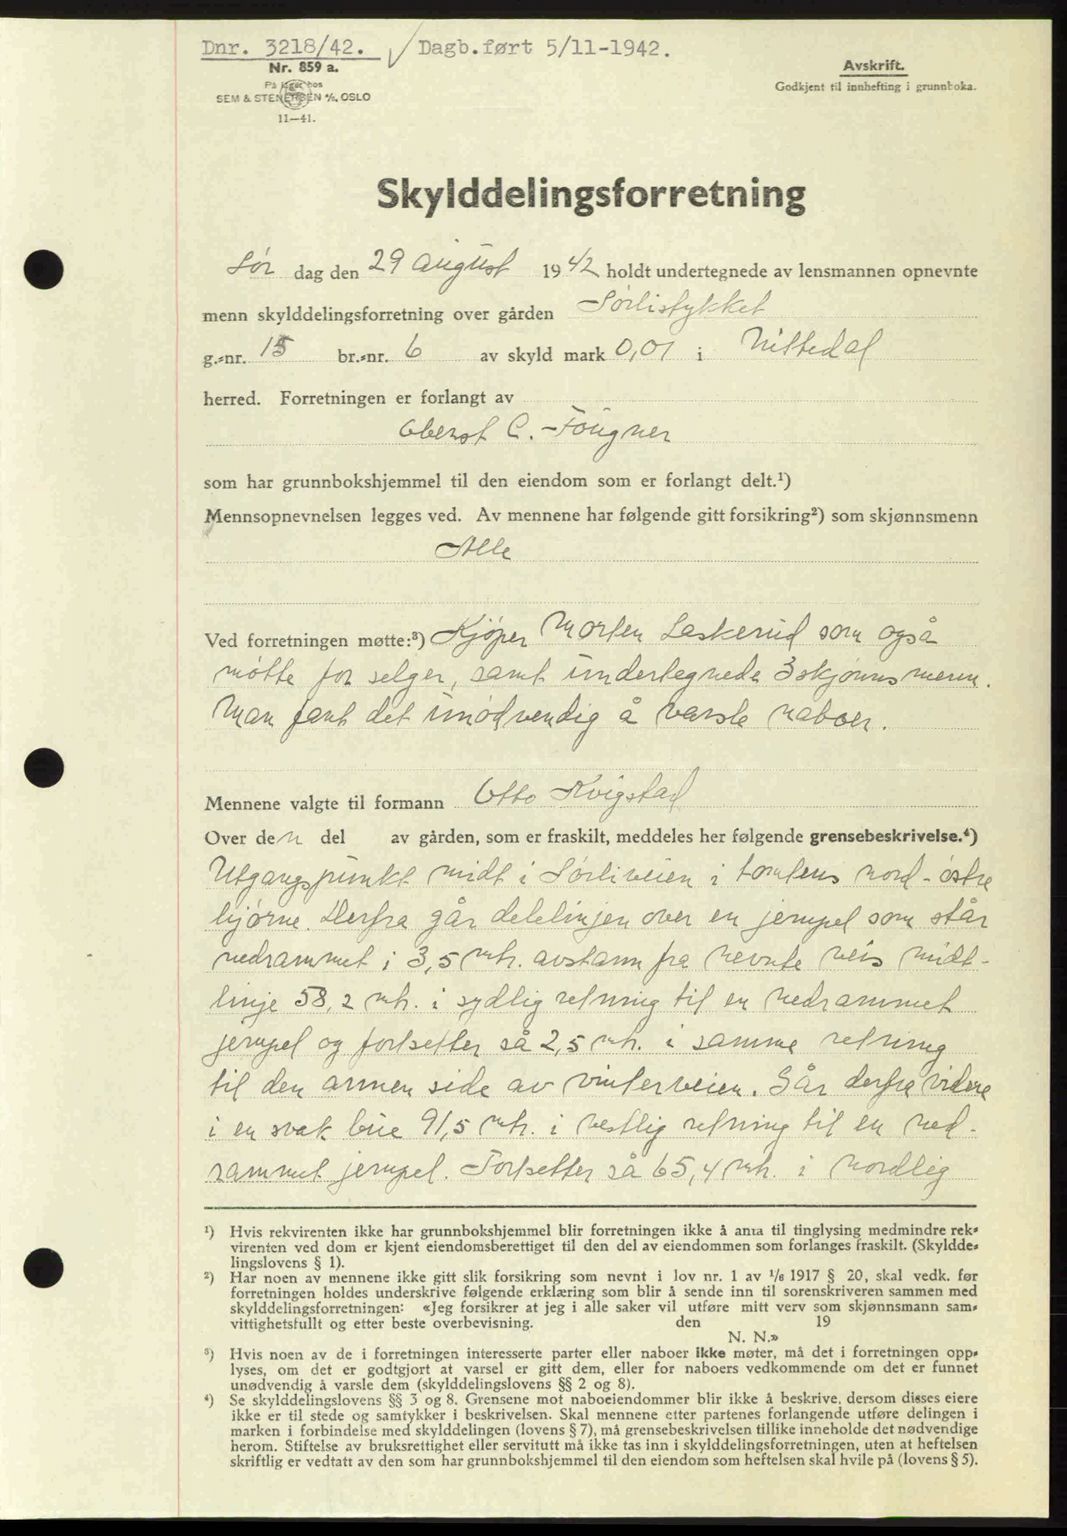 Dnr. 3218/42. Dagb.ført 5/11-1942.
Nr. 859 a.
På lager hos
SEM & STENERSEN A/S, OSLO
11—41.
Avskrift.
Godkjent til innhefting i grunnboka.
Skylddelingsforretning
Lør dag den 29 august 1942 holdt undertegnede av lensmannen opnevnte
menn skylddelingsforretning over gården Sørlistykket
g.-nr. 15 br.-nr. 6 av skyld mark 0,01 i Nittedal
herred. Forretningen er forlangt av
Oberst C. Fougner
som har grunnbokshjemmel til den eiendom som er forlangt delt.¹)
Mennsopnevnelsen legges ved. Av mennene har følgende gitt forsikring²) som skjønnsmenn
Alle
Ved forretningen møtte:³) Kjøper Morten Laskerud som også
møtte for selger, samt undertegnede 3 skjønnsmenn.
Man fant det unødvendig å varsle naboer.
Mennene valgte til formann Otto Kvigstad
Over den del av gården, som er fraskilt, meddeles her følgende grensebeskrivelse.⁴)
Utgangspunkt midt i Sørliveien i tomtens nord-østre
hjørne. Derfra går delelinjen over en jernpel som står
nedrammet i 3,5 mtr. avstann fra nevnte veis midt-
linje 58,2 mtr. i sydlig retning til en nedrammet
jernpel og fortsetter så 2,5 mtr. i samme retning
til den annen side av vinterveien. Går derfra videre
i en svak bue 91,5 mtr. i vestlig retning til en ned-
rammet jernpel. Fortsetter så 65,4 mtr. i nordlig
¹) Hvis rekvirenten ikke har grunnbokshjemmel blir forretningen ikke å anta til tinglysing medmindre rek-
virenten ved dom er kjent eiendomsberettiget til den del av eiendommen som forlanges fraskilt. (Skyldde-
lingslovens § 1).
²) Har noen av mennene ikke gitt slik forsikring som nevnt i lov nr. 1 av 1/6 1917 § 20, skal vedk. før
forretningen holdes underskrive følgende erklæring som blir å sende inn til sorenskriveren sammen med
skylddelingsforretningen: «Jeg forsikrer at jeg i alle saker vil utføre mitt verv som skjønnsmann sam-
vittighetsfullt og etter beste overbevisning. den 19
N. N.»
³) Hvis noen av de i forretningen interesserte parter eller naboer ikke møter, må det i forretningen opp-
lyses, om det er godtgjort at varsel er gitt dem, eller for naboers vedkommende om det er funnet
unødvendig å varsle dem (skylddelingslovens §§ 2 og 8).
⁴) Se skylddelingslovens §§ 3 og 8. Grensene mot naboeiendommer blir ikke å beskrive, dersom disses eiere
ikke er til stede og samtykker i beskrivelsen. Skal mennene etter partenes forlangende utføre delingen i
marken i forbindelse med skylddelingen (lovens § 7), må grensebeskrivelsen tillike inneholde det nødvendige
herom. Stiftelse av bruksrettighet eller servitutt må ikke tas inn i skylddelingsforretningen, uten at heftelsen
skriftlig er vedtatt av den som har grunnbokshjemmel til den eiendom som heftelsen skal hvile på (lovens § 5).